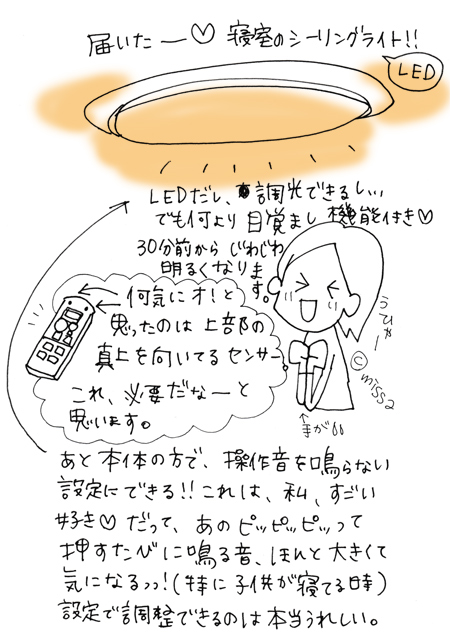 届いたー♡ 寝室のシーリングライト!!
LED
LEDだし、調光できるし…
でも何より 目覚まし機能付き♡
30分前から じわじわ
明るくなります。
うひゃー
©miss2
何気にオ!と
思ったのは 上部の
真上を向いてるセンサー。
これ、必要だなーと
思います。
↑手が
あと 本体の方で、操作音を鳴らない
設定にできる!! これは、私、すごい
好き♡ だって、あの ピッピッピッって
押すたびに鳴る音、ほんと大きくて
気になるっっ!(特に子供が寝てる時)
設定で調整できるのは本当うれしい。